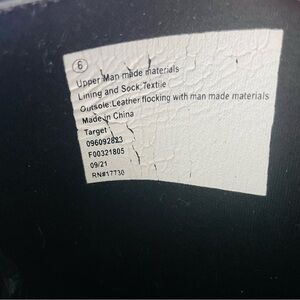 6
Upper:Man made materials
Lining and Sock:Textile
Outsole:Leather flocking with man made materials
Made in China
Target
096092823
F00321805
09/21
RN#17730